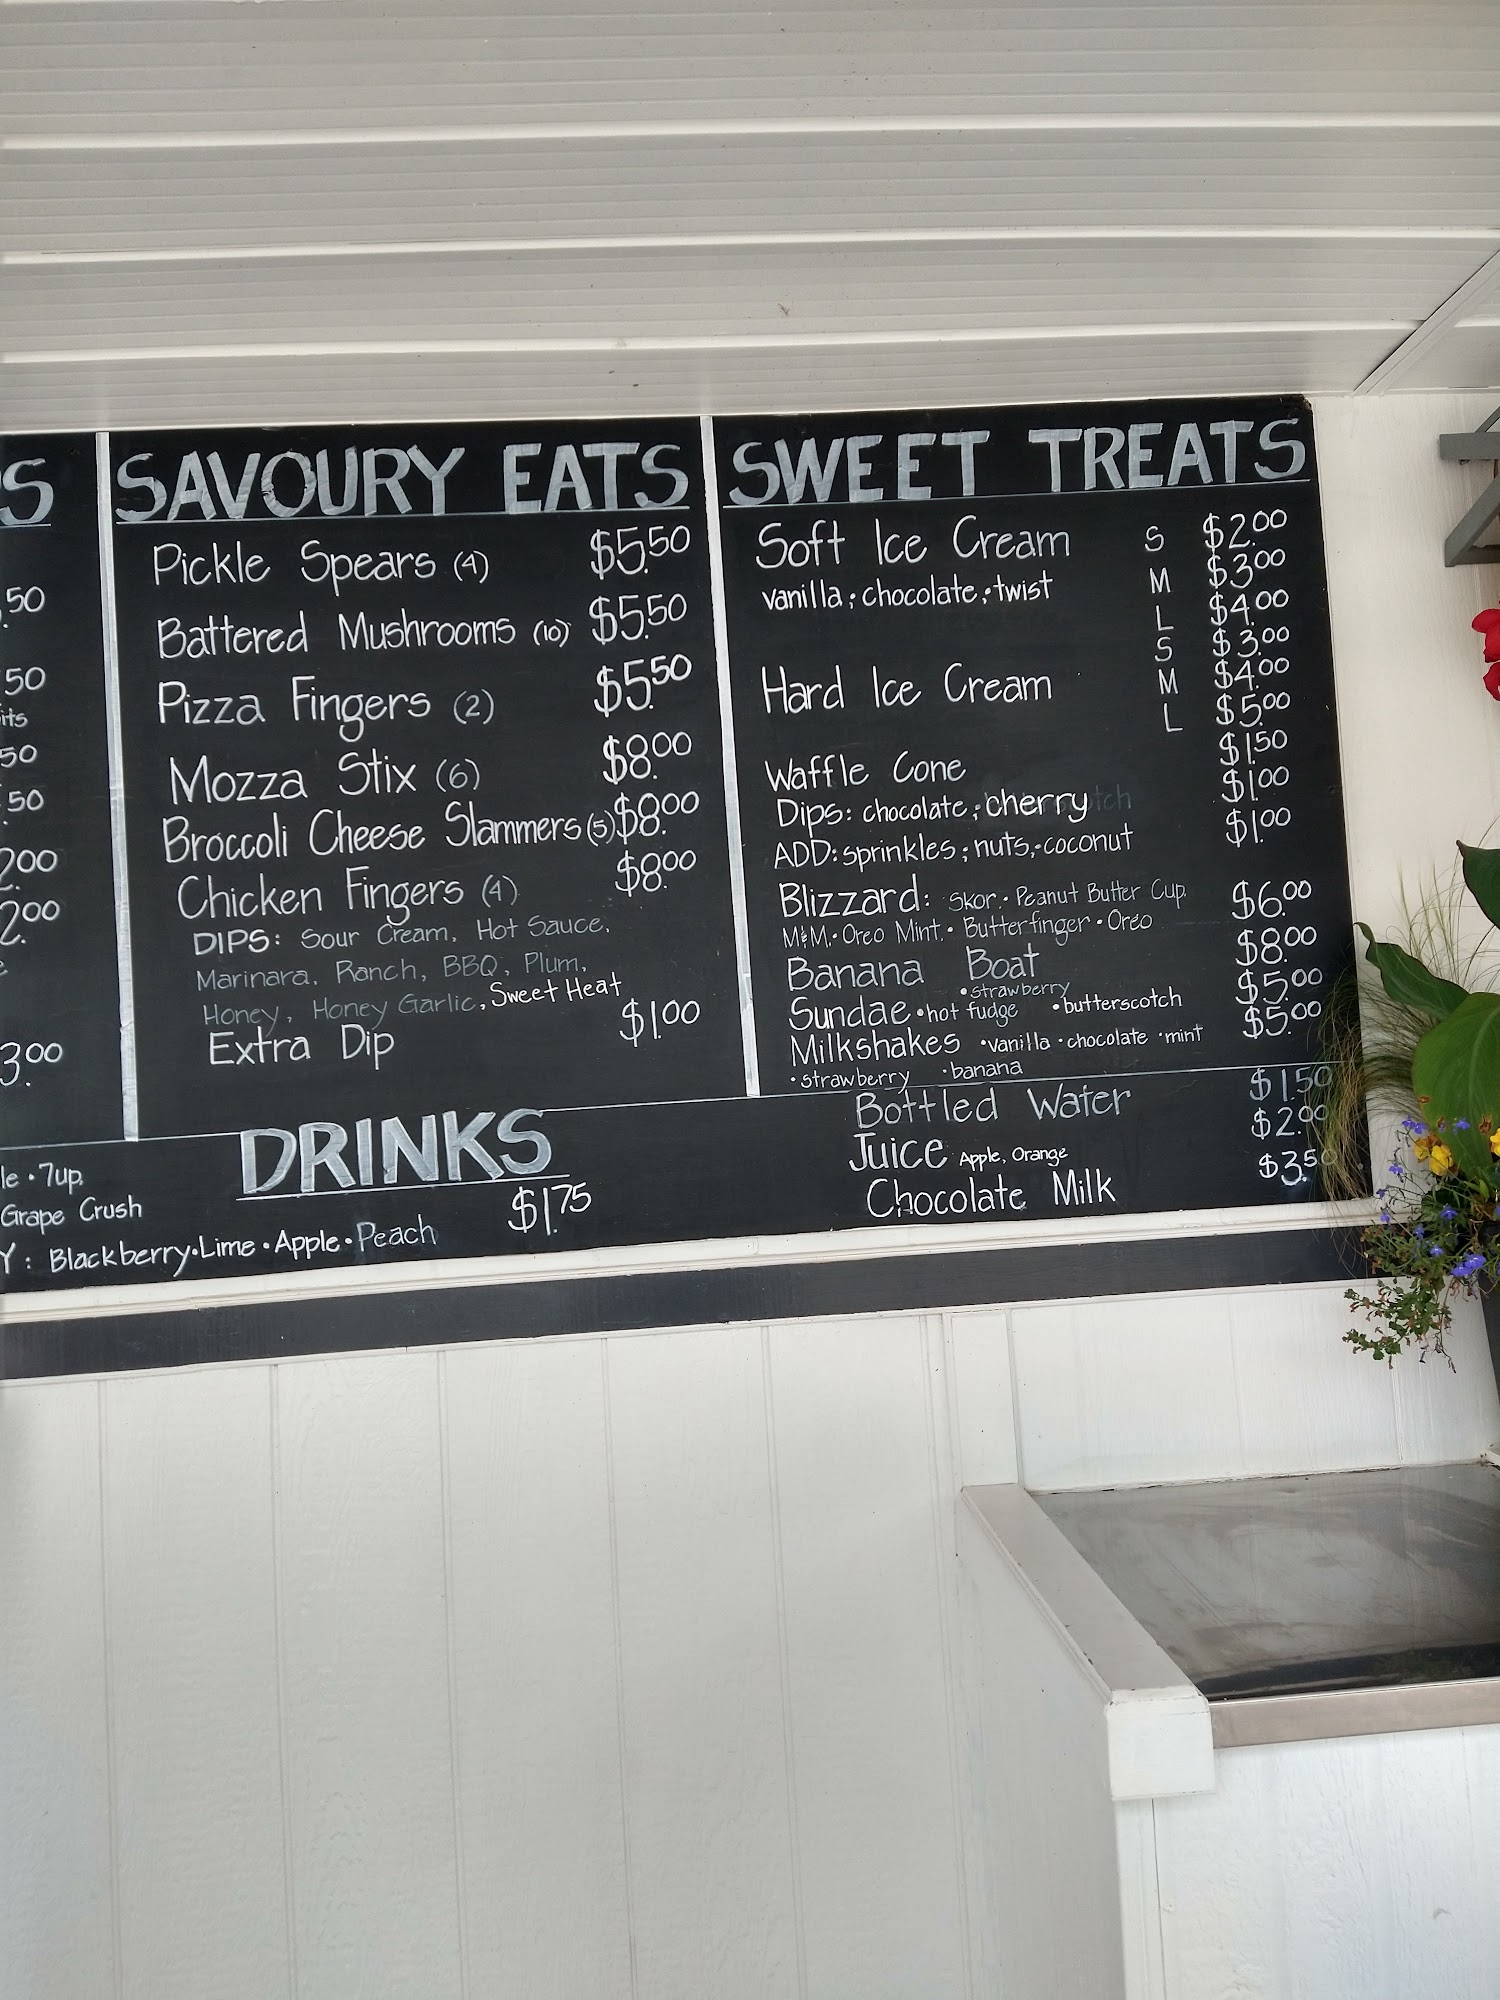 S
.50
50
its
50
.50
2.00
2.00
e
3.00
SAVOURY EATS
Pickle Spears (4) $5.50
Battered Mushrooms (10) $5.50
Pizza Fingers (2) $5.50
Mozza Stix (6) $8.00
Broccoli Cheese Slammers (5) $8.00
Chicken Fingers (4) $8.00
DIPS: Sour Cream, Hot Sauce,
Marinara, Ranch, BBQ, Plum,
Honey, Honey Garlic, Sweet Heat
Extra Dip $1.00
SWEET TREATS
Soft Ice Cream S $2.00
vanilla; chocolate; twist M $3.00
L $4.00
S $3.00
Hard Ice Cream M $4.00
L $5.00
Waffle Cone $1.50
Dips: chocolate; cherry $1.00
ADD: sprinkles; nuts, coconut $1.00
Blizzard: Skor • Peanut Butter Cup $6.00
M&M • Oreo Mint • Butterfinger • Oreo
Banana Boat $8.00
• strawberry
Sundae • hot fudge • butterscotch $5.00
Milkshakes • vanilla • chocolate • mint $5.00
• strawberry • banana
DRINKS
le • 7up
Grape Crush $1.75
Y: Blackberry • Lime • Apple • Peach
Bottled Water $1.50
Juice Apple, Orange $2.00
Chocolate Milk $3.50